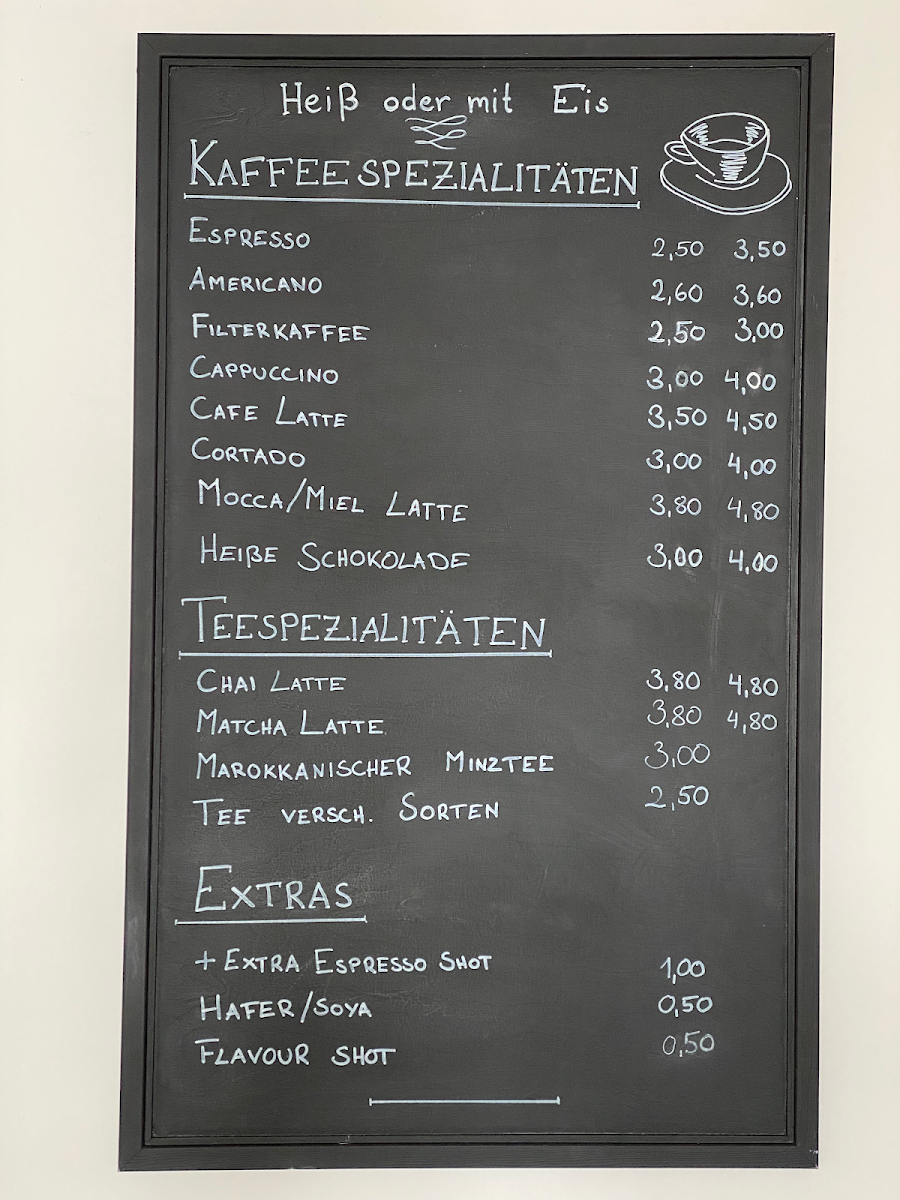 Heiß oder mit Eis
KAFFEESPEZIALITÄTEN
ESPRESSO 2,50 3,50
AMERICANO 2,60 3,60
FILTERKAFFEE 2,50 3,00
CAPPUCCINO 3,00 4,00
CAFE LATTE 3,50 4,50
CORTADO 3,00 4,00
MOCCA/MIEL LATTE 3,80 4,80
HEIßE SCHOKOLADE 3,00 4,00
TEESPEZIALITÄTEN
CHAI LATTE 3,80 4,80
MATCHA LATTE 3,80 4,80
MAROKKANISCHER MINZTEE 3,00
TEE VERSCH. SORTEN 2,50
EXTRAS
+ EXTRA ESPRESSO SHOT 1,00
HAFER/SOYA 0,50
FLAVOUR SHOT 0,50